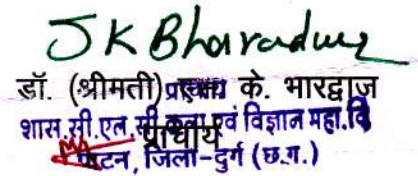 JK Bharadwaj
डॉ. (श्रीमती) के. भारद्वाज
शास. सी.एल.सी. कला एवं विज्ञान महा.वि
प्राचार्य
पाटन, जिला-दुर्ग (छ.ग.)